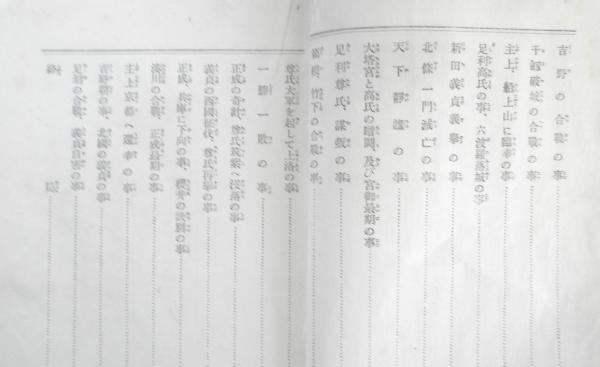 吉野の合戰の事
千劔破城の合戰の事
主上、船上山に臨幸の事
足利高氏の事、六波羅落城の事
新田義貞義擧の事
北條一門滅亡の事
天下靜謐の事
大塔宮と高氏の暗鬪、及び宮御最期の事
足利尊氏、謀叛の事
竹下の合戰の事
尊氏大軍を起して上洛の事
一勝一敗の事
正成の奇計、尊氏兵庫へ沒落の事
義貞の西國征伐、尊氏再擧の事
正成、兵庫に下向の事、櫻井の訣別の事
湊川の合戰、正成最期の事
主上京都へ還幸の事
吉野の事、北國の義貞の事
足羽の合戰、義貞自害の事